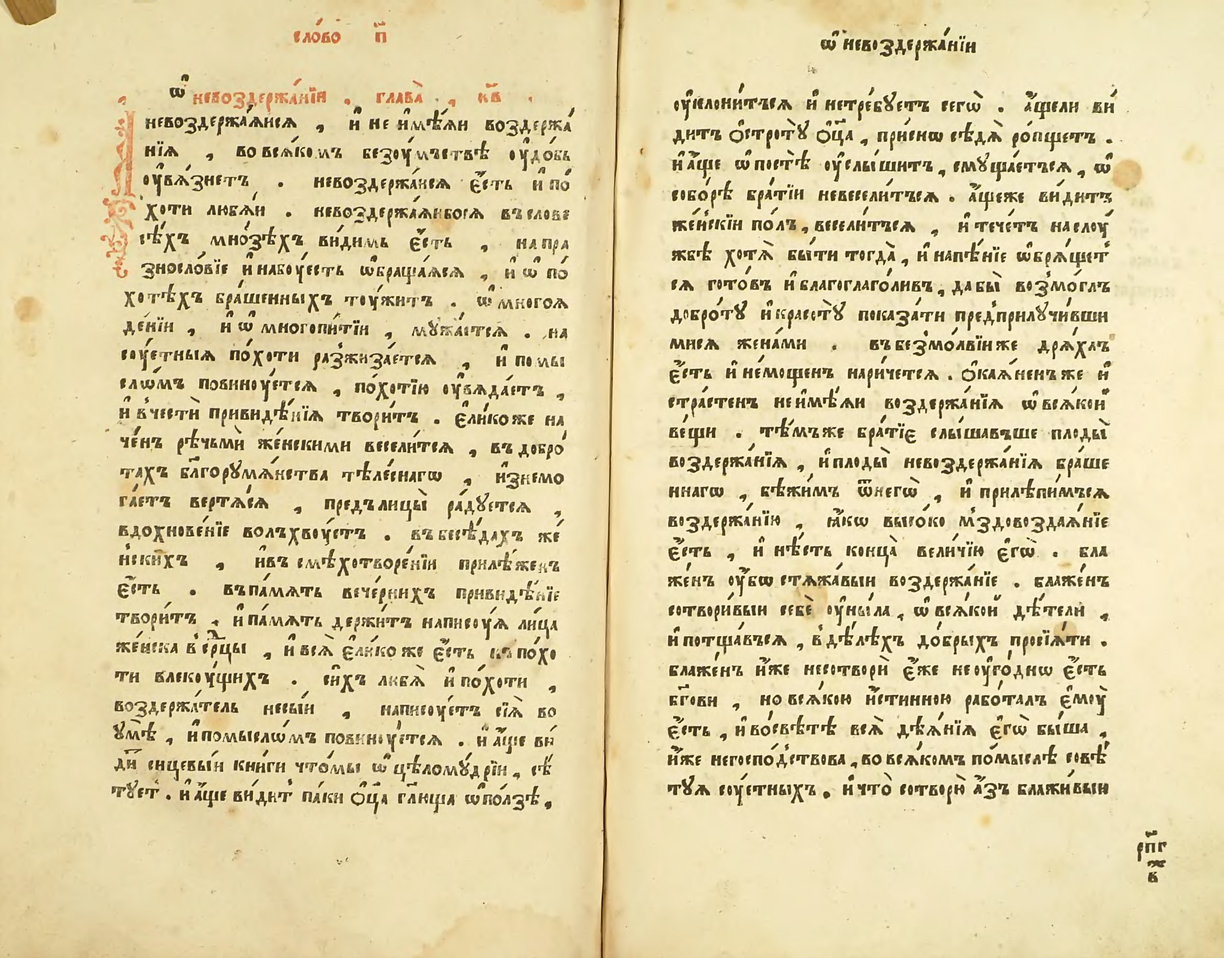 сло́во п҃
ѿ невоздержа́нїѧ . глава̀ , к҃в .
невоздержа́ѧисѧ , и҆ не и҆мѣ́ѧи воздержа́
нїѧ , во всѧ́комъ безоу́мъствѣ оу҆до́бь
оу҆вѧ́знетъ . невоздержа́исѧ є҆́сть и҆ по́
хоти любѧ́и . невоздержа́ѧибосѧ въ слове
сѣ́хъ мно́зѣхъ ви́димь є҆́сть , на пра
зносло́вїе и҆ на боу́есть ѡ҆браща́ѧсѧ , и҆ ѡ҆ по́
хотѣхъ бра́шенныхъ тоу́житъ . ѡ҆ многоѧ
де́нїи , и҆ ѡ҆ многопи́тїи , мꙋжа́етсѧ . на
соу́етныѧ по́хоти разжиза́етсѧ , и҆ помы
слѡ́мъ повиноу́етсѧ , по́хотїю оу҆вѧда́етъ ,
и҆ в че́сти привидѣ́нїѧ твори́тъ . є҆ли́коже на
че́нъ рѣчьмѝ же́нскими весели́тсѧ , въ добро́
тахъ бл҃горꙋмѧ́нства тѣле́снагѡ , и҆знемо
га́етъ вертѧ́сѧ , предъ лицы̀ ра́дꙋетсѧ ,
вдохнове́нїе волъхвоу́етъ . въ бесѣ́дахъ же́
нскихъ , и҆ въ смѣхотворе́нїи прилѣ́женъ
є҆́сть . въ па́мѧть вече́рнихъ привидѣ́нїе
твори́тъ , и҆ па́мѧть держи́тъ написоу́ѧ ли́ца
же́нска в се҆рцы̀ , и҆ всѧ̀ є҆ли́ко же є҆́сть къ похо
ти влекоу́щихъ . си́хъ любѧ̀ и҆ по́хоти ,
воздержа́тель несы́и , написоу́етъ сїѧ̀ во
оу҆мѣ̀ , и҆ помыслѡ́мъ повиноу́етсѧ . и҆ а҆́ще ви́
ди сицевы́и кни́ги что́мы ѡ҆ цѣломꙋ́дрїи , сѣ́
тꙋет . и҆ а҆́ще ви́дит па́ки ѻ҆ц҃а̀ гл҃юща ѡ҆ по́лзѣ ,
ѡ҆ невоздержа́нїи
оу҆клони́тьсѧ и҆ нетре́бꙋетъ сегѡ̀ . а҆́щели ви́
дитъ ѻ҆стротꙋ̀ ѻ҆ц҃а̀ , при́снѡ сѣдѧ̀ ро́пщетъ .
и҆ а҆́ще ѡ҆ по́стѣ оу҆слы́шитъ , смꙋща́етьсѧ , ѡ҆
собо́рѣ бра́тїи невесели́тьсѧ . а҆́щеже ви́дитъ
же́нскїи по́лъ , весели́тьсѧ , и҆ тече́тъ на слоу́
жбѣ хотѧ̀ бы́ти тогда̀ , и҆ напѣ́нїе ѡ҆брѧ́щет
сѧ гото́въ и҆ благоглаго́ливъ , да бы̀ возмо́глъ
добротꙋ̀ и҆ красотꙋ̀ показа́ти предприлꙋчи́вши
мисѧ жена́ми . въ безмо́лвїи же дрѧ́хлъ
є҆́сть и҆ немо́щенъ нарече́тсѧ . ѻ҆каѧ́ненъ же и҆
стра́стенъ не и҆мѣ́ѧи воздержа́нїѧ ѡ҆ всѧ́кои
ве́щи . тѣ́мъже бра́тїе слы́шавъше плоды̀
воздержа́нїѧ , и҆ плоды̀ невоздержа́нїѧ бра́ше
ннагѡ , бѣжи́мъ ѿ негѡ̀ , и҆ прилѣпи́мъсѧ
воздержа́нїю , ꙗ҆́кѡ высо́ко мъздовоздаѧ́нїе
є҆́сть , и҆ нѣ́сть конца̀ вели́чїю є҆гѡ̀ . бла
же́нъ оу҆́бѡ стѧжа́выи воздержа́нїе . блаже́нъ
сотвори́выи себѐ оу҆ны́ла , ѡ҆ всѧ́кои дѣ́тели ,
и҆ потща́вьсѧ , в дѣ́лѣхъ до́брыхъ просїѧ́ти .
блаже́нъ и҆́же несотворѝ є҆́же не оу҆го́днѡ є҆́сть
бг҃ови , но всѧ́кою и҆́стинною рабо́талъ є҆моу̀
є҆́сть , и҆ во свѣ́тѣ всѧ̀ дѣѧ́нїѧ є҆гѡ̀ бы́ша ,
и҆́же негоспо́дствова , во всѧ́комъ по́мыслѣ совѣ́
тꙋѧ соу́етныхъ . и҆ что̀ сотворю̀ а҆́зъ блажи́выи
рп҃г
ж
в